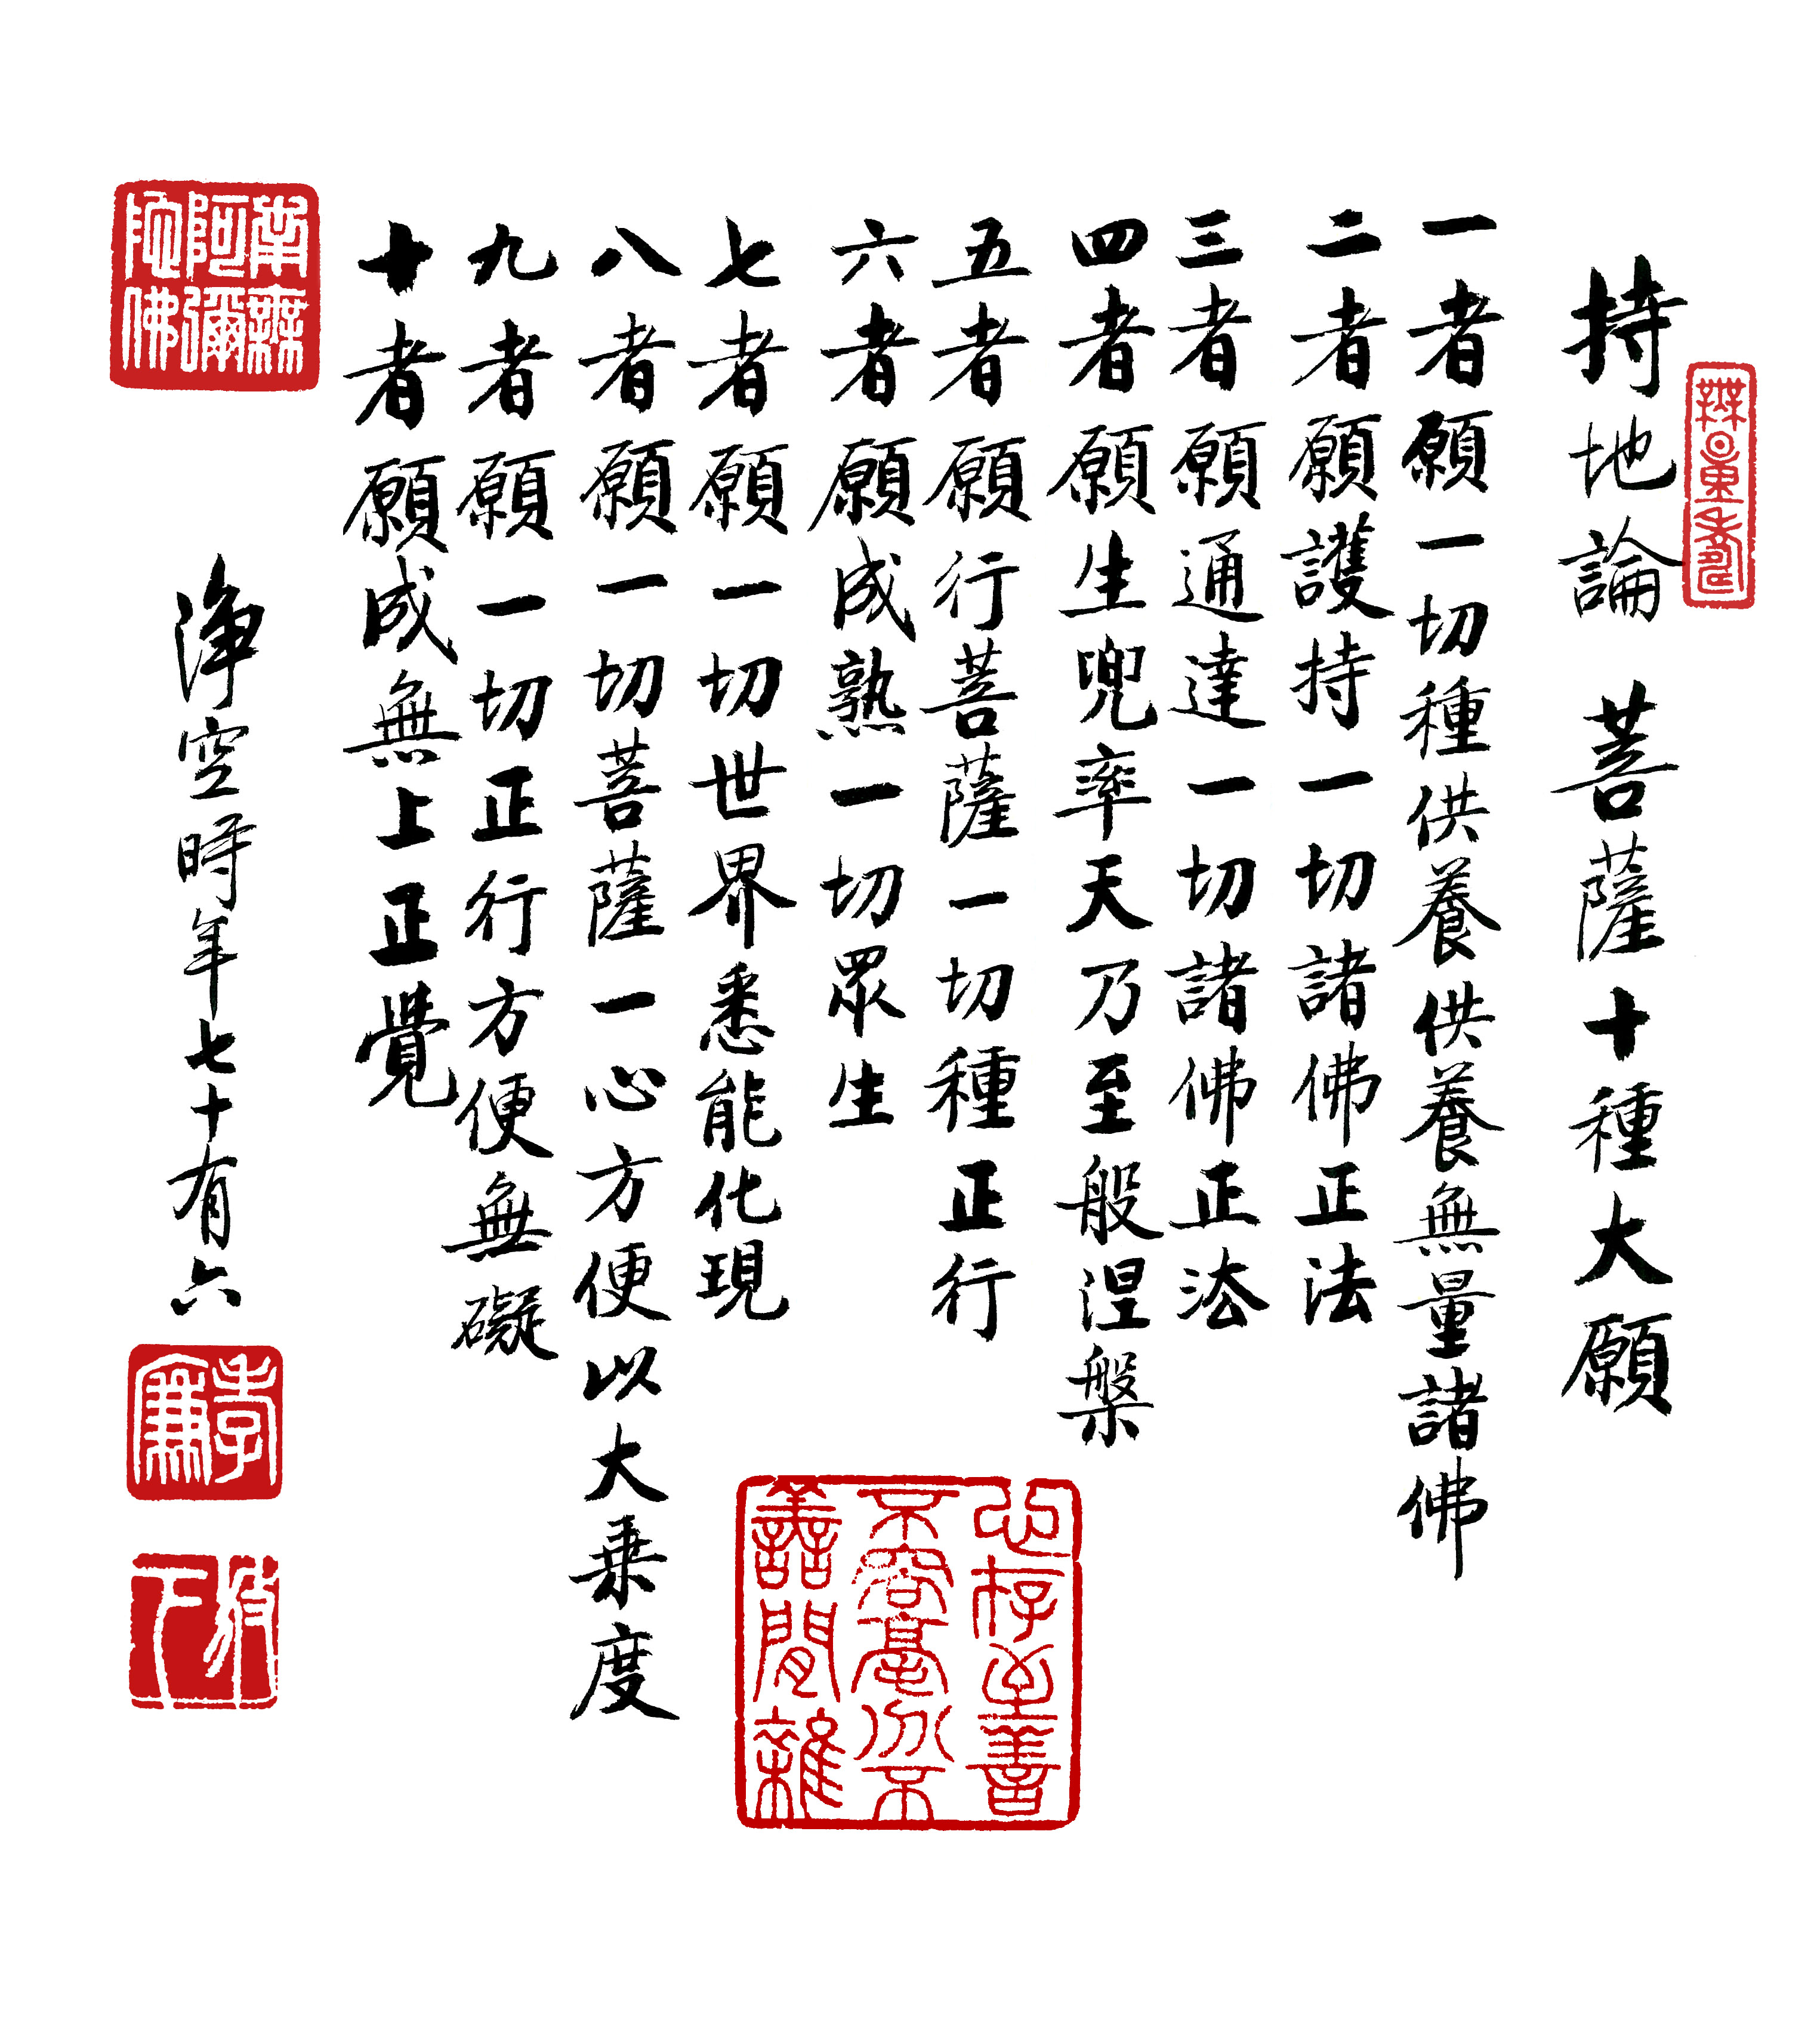 無量壽
持地論 菩薩十種大願
一者願一切種供養供養無量諸佛
二者願護持一切諸佛正法
三者願通達一切諸佛正法
四者願生兜率天乃至般涅槃
五者願行菩薩一切種正行
六者願成熟一切眾生
七者願一切世界悉能化現
八者願一切菩薩一心方便以大乘度
九者願一切正行方便無礙
十者願成無上正覺
南無
阿彌
陀佛
淨空時年七十有六
孝廉
心存至善
不容毫分不
善間雜